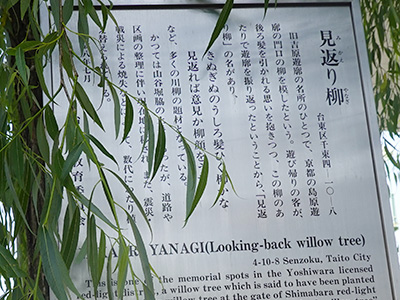 見返り柳
みかえ やなぎ
台東区千束四ー一〇ー八
旧吉原遊廓の名所のひとつで、京都の島原遊
廓の門口の柳を模したという。遊び帰りの客が、
後ろ髪を引かれる思いを抱きつつ、この柳のあ
たりで遊廓を振り返ったということから、「見返
り柳」の名があり、
きぬぎぬのうしろ髪ひく柳かな
見返れば意見か柳顔を
など、多くの川柳の題材となっている。
かつては山谷堀脇の あったが、道路や
区画の整理に伴い現在地に また、震災
戦災による焼失など 数代にわたり
替えられている。
八年七月
教育委員会
YANAGI(Looking-back willow tree)
4-10-8 Senzoku, Taito City
This is one of the memorial spots in the Yoshiwara licensed
red-light district, a willow tree which is said to have been planted
willow tree at the gate of Shimabara red-light